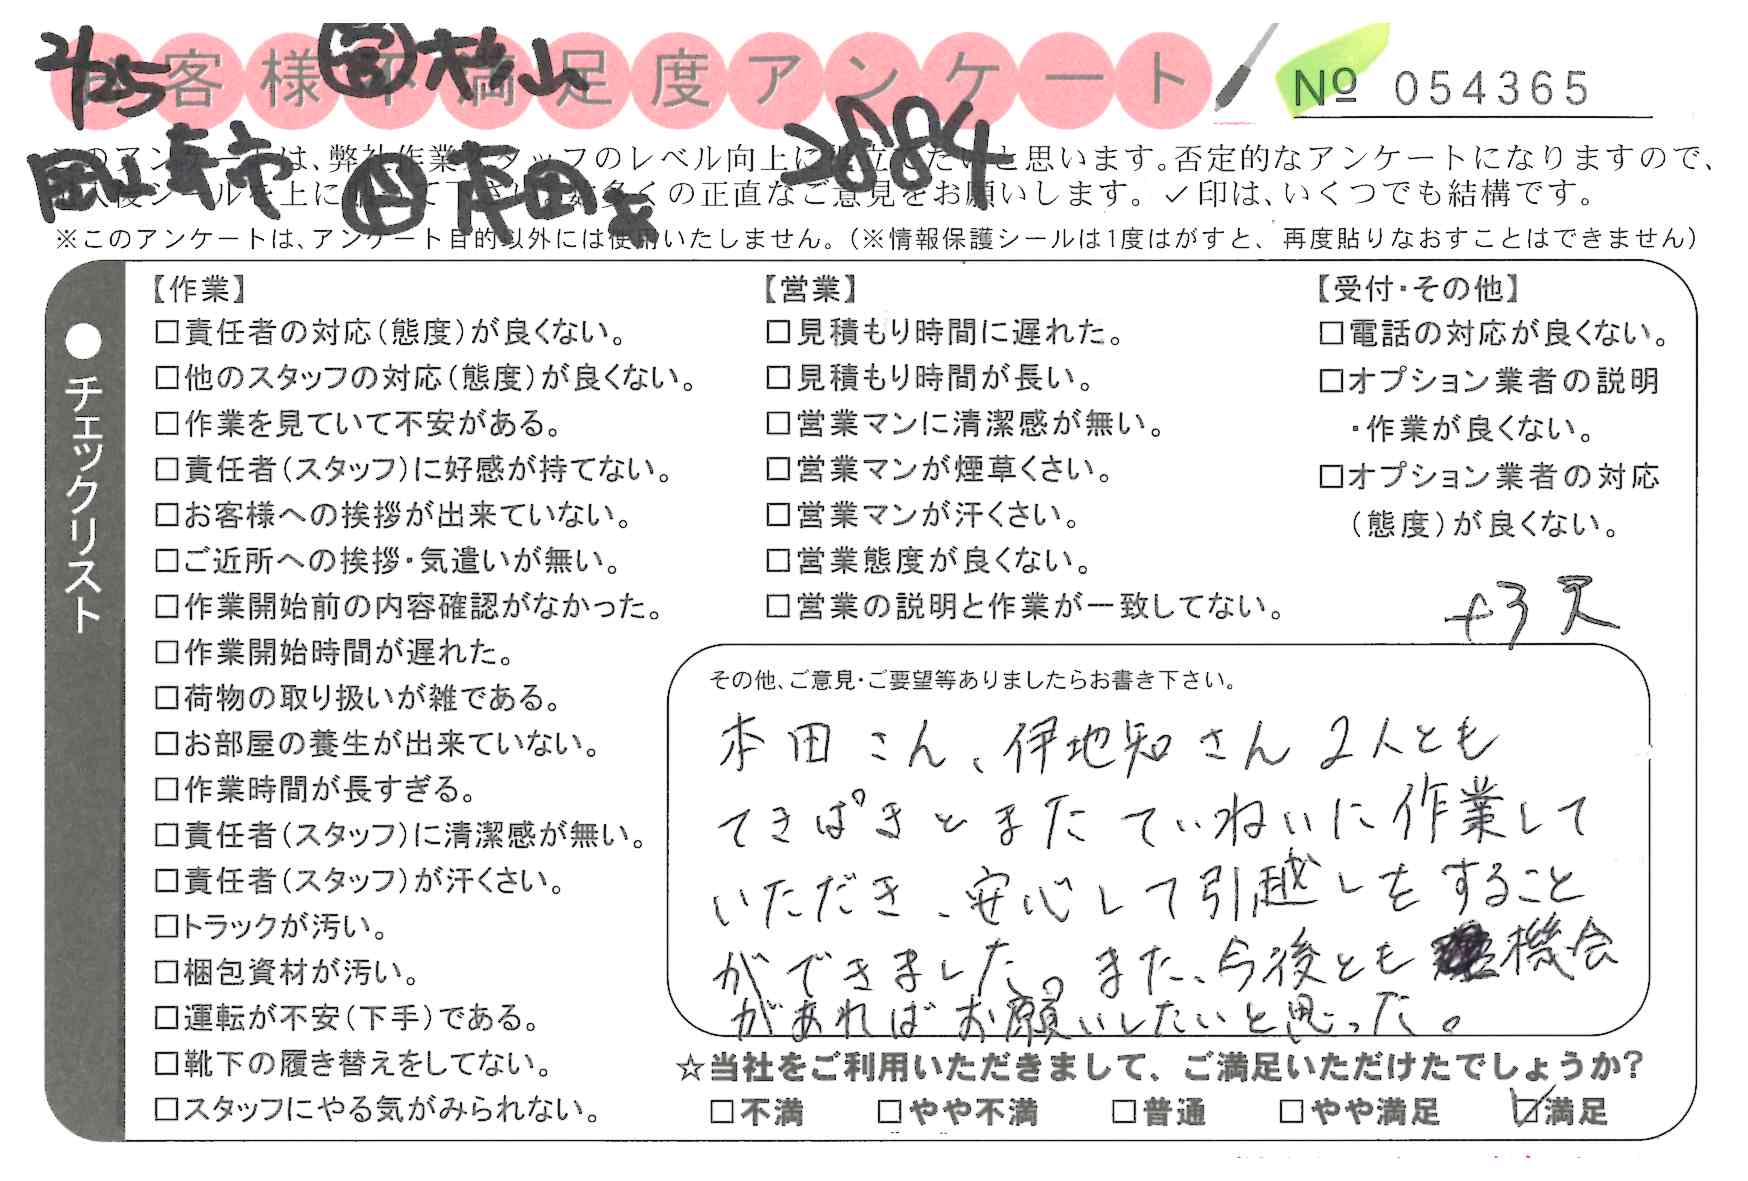 2/25 営 杉山
お客様不満足度アンケート
№ 054365
岡崎市 作 本田 2884
このアンケートは、弊社作業スタッフのレベル向上に役立てたいと思います。否定的なアンケートになりますので、
記入後シールを上に貼って下さい。数多くの正直なご意見をお願いします。✓印は、いくつでも結構です。
※このアンケートは、アンケート目的以外には使用いたしません。(※情報保護シールは1度はがすと、再度貼りなおすことはできません)
●チェックリスト
【作業】
□責任者の対応(態度)が良くない。
□他のスタッフの対応(態度)が良くない。
□作業を見ていて不安がある。
□責任者(スタッフ)に好感が持てない。
□お客様への挨拶が出来ていない。
□ご近所への挨拶・気遣いが無い。
□作業開始前の内容確認がなかった。
□作業開始時間が遅れた。
□荷物の取り扱いが雑である。
□お部屋の養生が出来ていない。
□作業時間が長すぎる。
□責任者(スタッフ)に清潔感が無い。
□責任者(スタッフ)が汗くさい。
□トラックが汚い。
□梱包資材が汚い。
□運転が不安(下手)である。
□靴下の履き替えをしてない。
□スタッフにやる気がみられない。
【営業】
□見積もり時間に遅れた。
□見積もり時間が長い。
□営業マンに清潔感が無い。
□営業マンが煙草くさい。
□営業マンが汗くさい。
□営業態度が良くない。
□営業の説明と作業が一致してない。
【受付・その他】
□電話の対応が良くない。
□オプション業者の説明
・作業が良くない。
□オプション業者の対応
(態度)が良くない。
+3
その他、ご意見・ご要望等ありましたらお書き下さい。
本田さん、伊地知さん 2人とも
てきぱきとまたていねいに作業して
いただき、安心して引越しをすること
ができました。また、今後とも機会
があればお願いしたいと思った。
☆当社をご利用いただきまして、ご満足いただけたでしょうか?
□不満 □やや不満 □普通 □やや満足 ☑満足